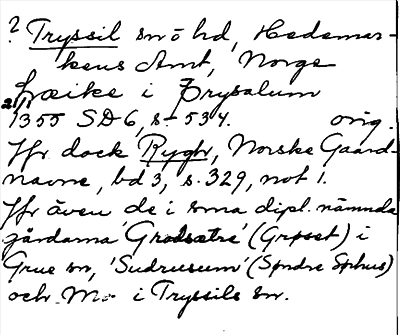 ? Tryssil sn o hd, Hedemar-
kens Amt, Norge
Læike i Þrysalum
2/11 1355 SD 6, s 534. orig.
Jfr dock Rygh, Norske Gaard-
navne, bd 3, s. 329, not 1.
Jfr även de i sma dipl. nämnda
gårdarna 'Grodsætre' (Grøset) i
Grue sn, 'Sudrusum' (Søndre Søhus)
och Mo i Tryssils sn.